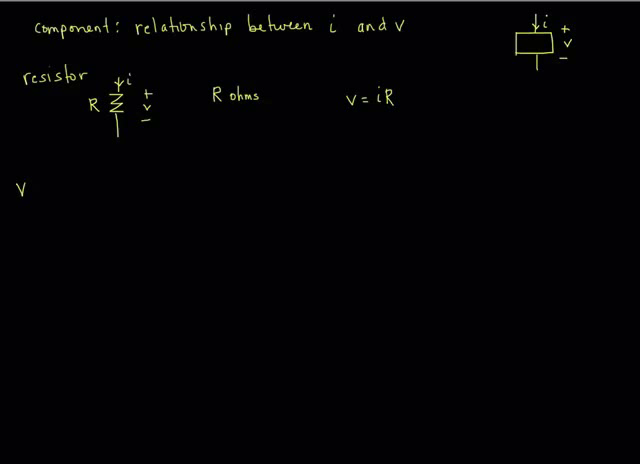 component: relationship between i and v
i
+
v
−
resistor
i
R
+
v
−
R ohms
v = iR
V